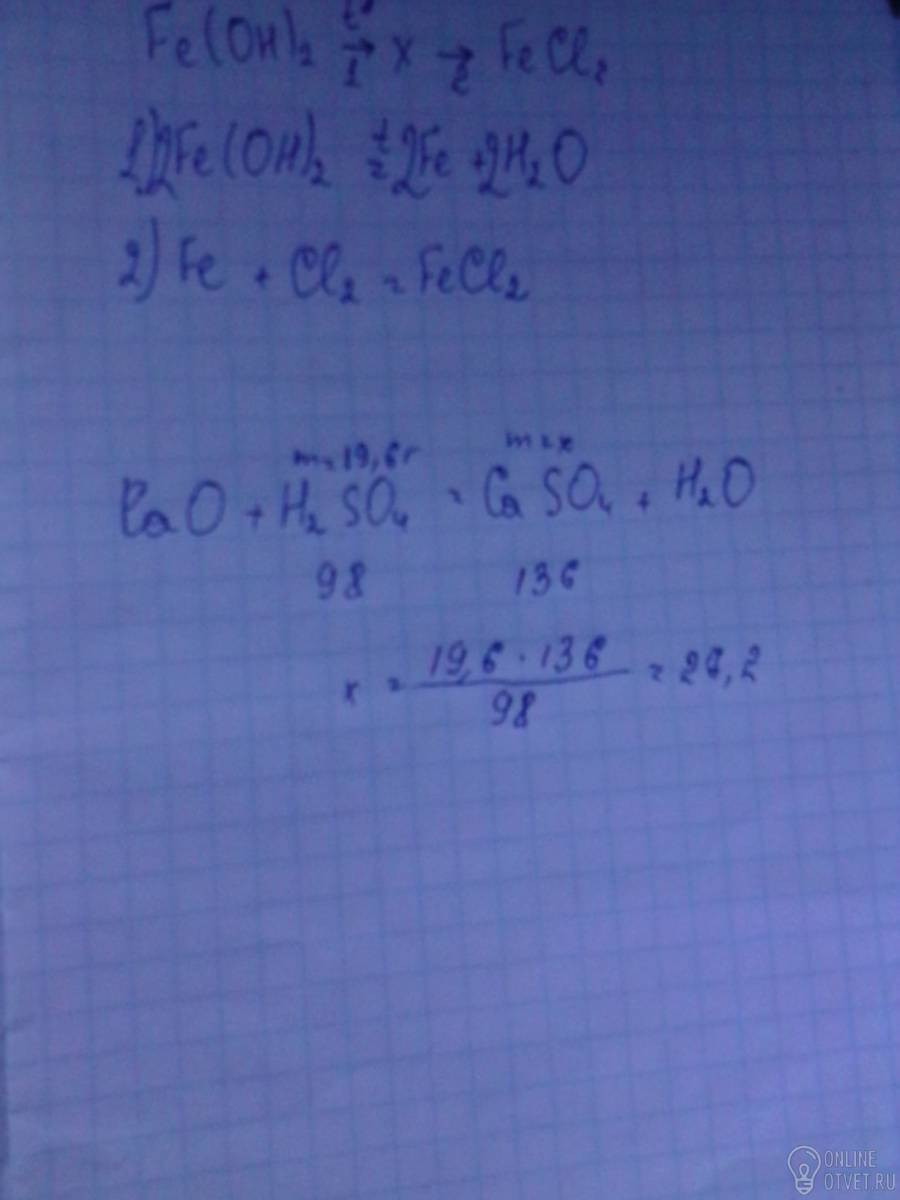 Fe(OH)₂ t°→1 x →2 FeCl₂
1) 2Fe(OH)₂ t= 2Fe + 2H₂O
2) Fe + Cl₂ = FeCl₂
m=19,6г m=x
CaO + H₂SO₄ = CaSO₄ + H₂O
98 136
x = 19,6 · 136 / 98 = 26,2
ONLINE
OTVET.RU